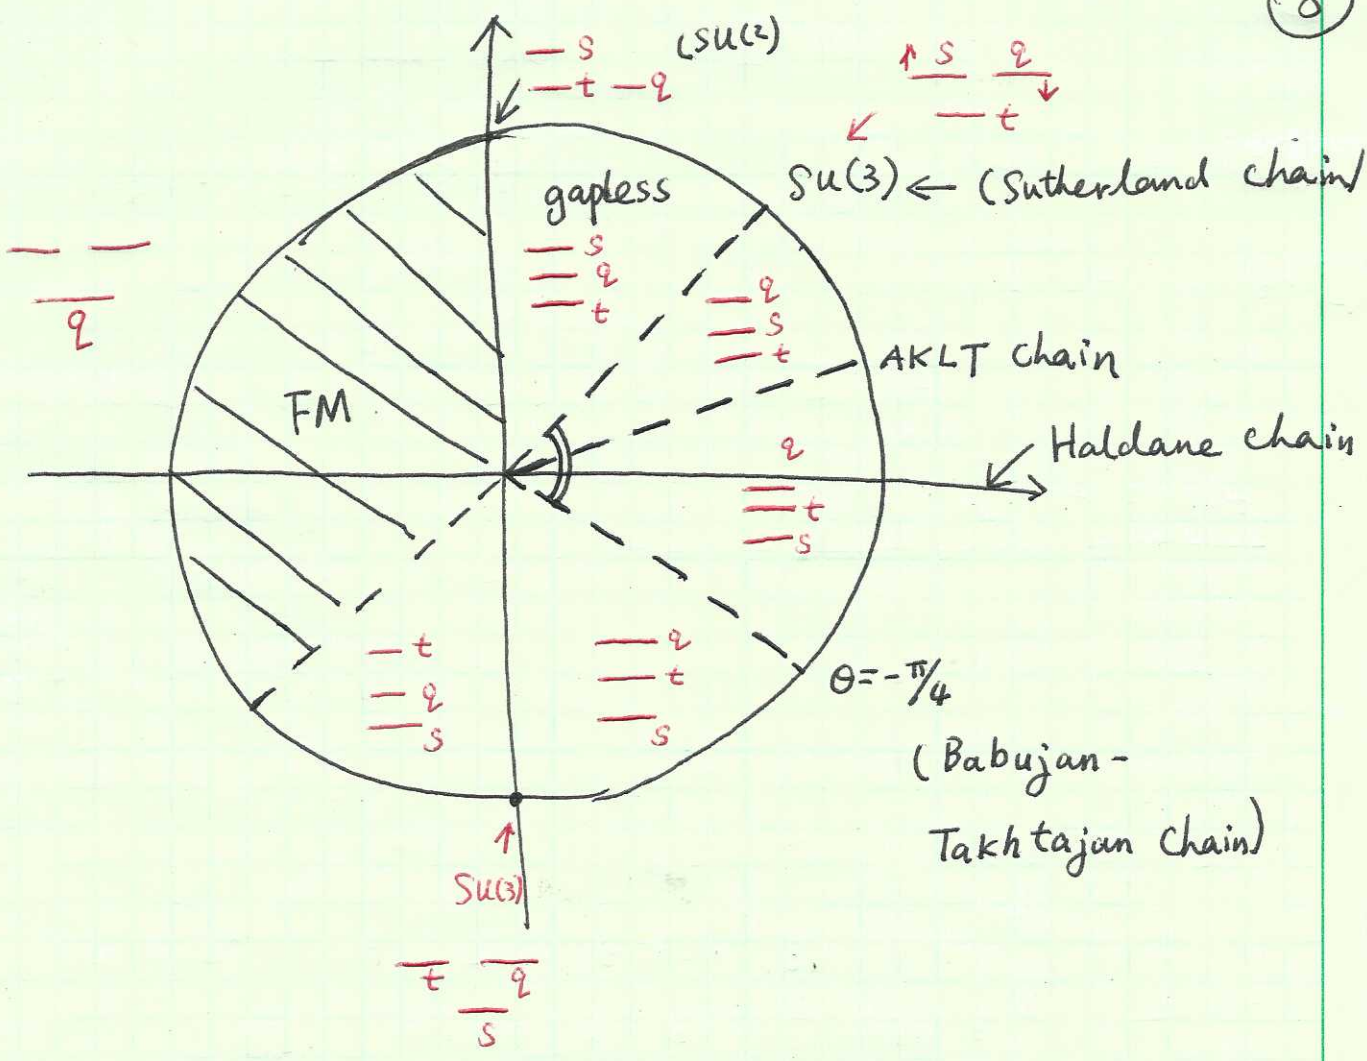 8
s (SU(2)
t q
s q
t
SU(3) ← (Sutherland chain)
gapless
s
q
t
q
s
t
q
AKLT chain
FM
Haldane chain
q
t
s
t
q
s
q
t
s
θ=-π/4
(Babujan-
Takhtajan Chain)
SU(3)
t q
s